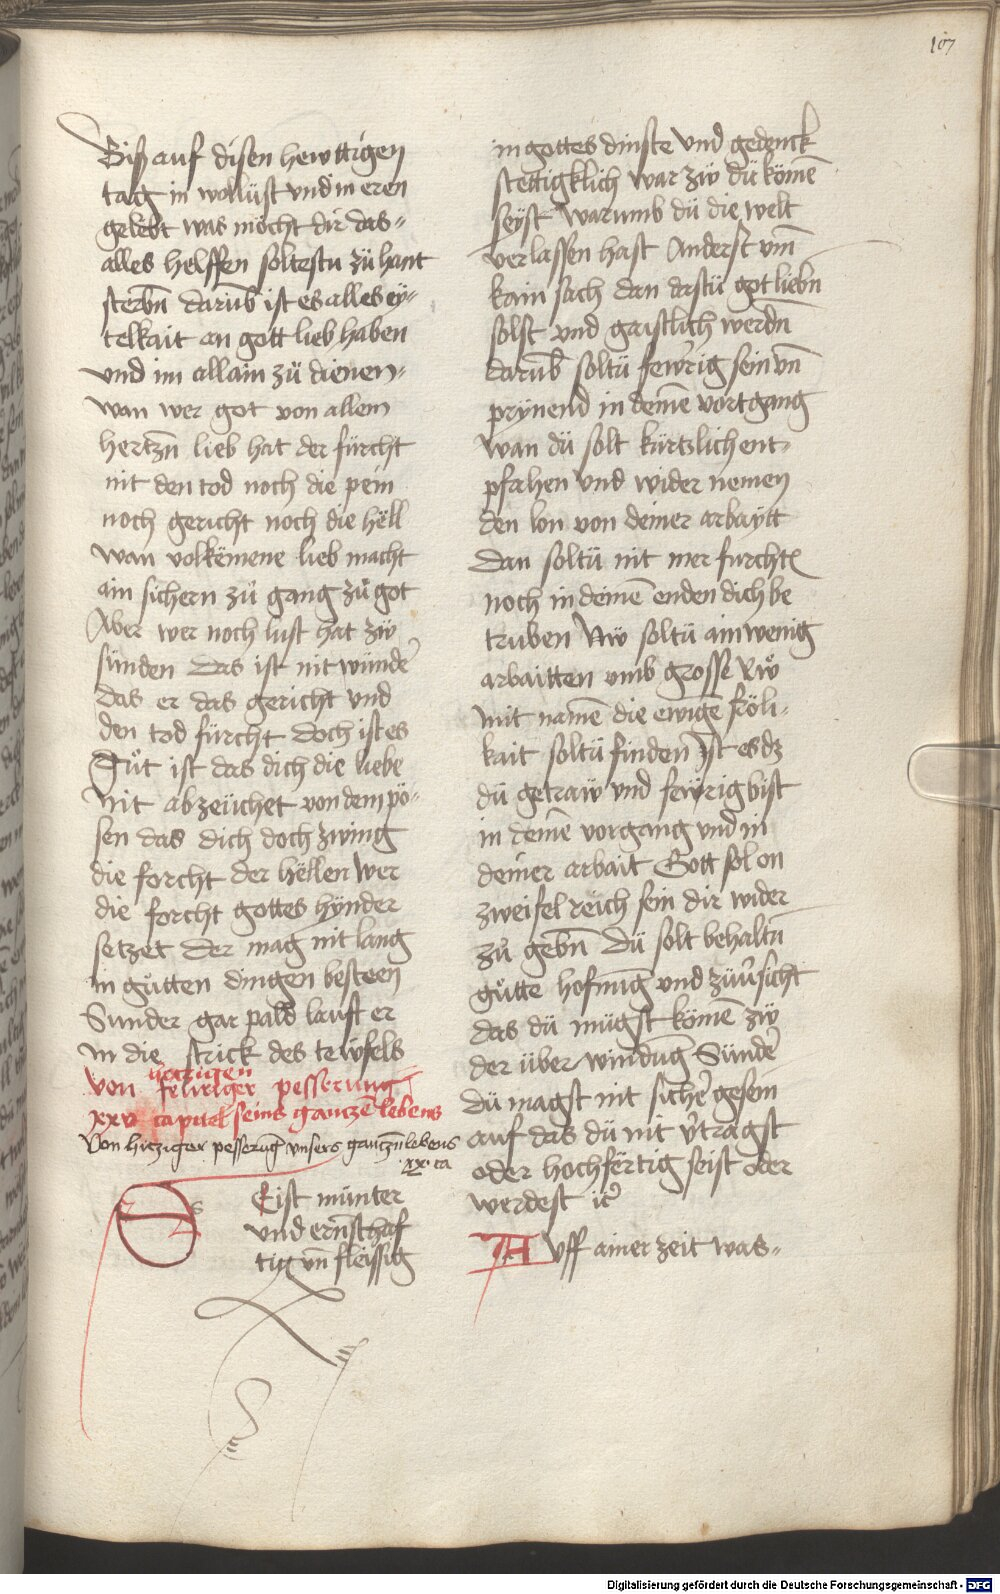 107
Biß auf disen hewttigen
tag in wollüst vnd in eren
gelebt was möcht dir das
alles helffen soltestu zü hant
sterbn̄ darūb ist es alles ey„
telkait an gott lieb haben
vnd im allain zü dienen„
wan wer got von allem
hertzn̄ lieb hat der fürcht
nit den tod noch die pein
noch gericht noch die hëll
wan volkëmene lieb macht
ain sichern zů gang zů got
Aber wer noch lust hat zw̎
sünden das ist nit wunder
das er das gericht vnd
den tod fürcht doch ist es
Gůt ist das dich die liebe
nit abzeüchet von dem pö„
sen das dich doch zwing
die forcht der hëllen wer
die forcht gottes hÿnder
setzet der mag nit lang
in gůtten dingen besteen
Sunder gar pald lauft er
in die strick des tewfels
von feuriger pesserung
xxv capitel seins gantzē lebens
Von hiziger pesserūg vnsers gantzn̄ lebens
·xx· ca
Eist münter
vnd ernschaf
tig vn̄ fleissig
in gottes dinste vnd gedenck
stettigklich war zw̎ dü kömē
seÿst warumb dü die welt
verlassen hast Anderst vm̄
kain sach dan dastü got liebn̄
solst vnd gaistlich werdn̄
darūb soltü fewrig sein vn̄
prÿnend in deinē vortgang
wan dü solt kürtzlich ent„
pfahen vnd wider nemen
den lon von deiner arbaÿtt
dan soltü nit mer furchtē
noch in deinē enden dich be
truben Nw̎ soltü ain wenig
arbaitten vmb grosse Rw̎
mit namē die ewigē fröli„
kait soltü finden Ist es dz
dü getraẅ vnd fewrig bist
in deinē vorgang vnd in
deiner arbait Gott sol on
zweifel reich sein dir wider
zů gebn̄ Dü solt behaltn̄
gůtte hofnūg vnd züuͦsicht
das dü mügst kömē zw̎
der über windūg Sünder
dü magst nit sicher gesein
auf das dü nit vͦtragst
oder hochfërtig seist oder
werdest ꝛc
Avff ainer zeit was„
Digitalisierung gefördert durch die Deutsche Forschungsgemeinschaft - DFG